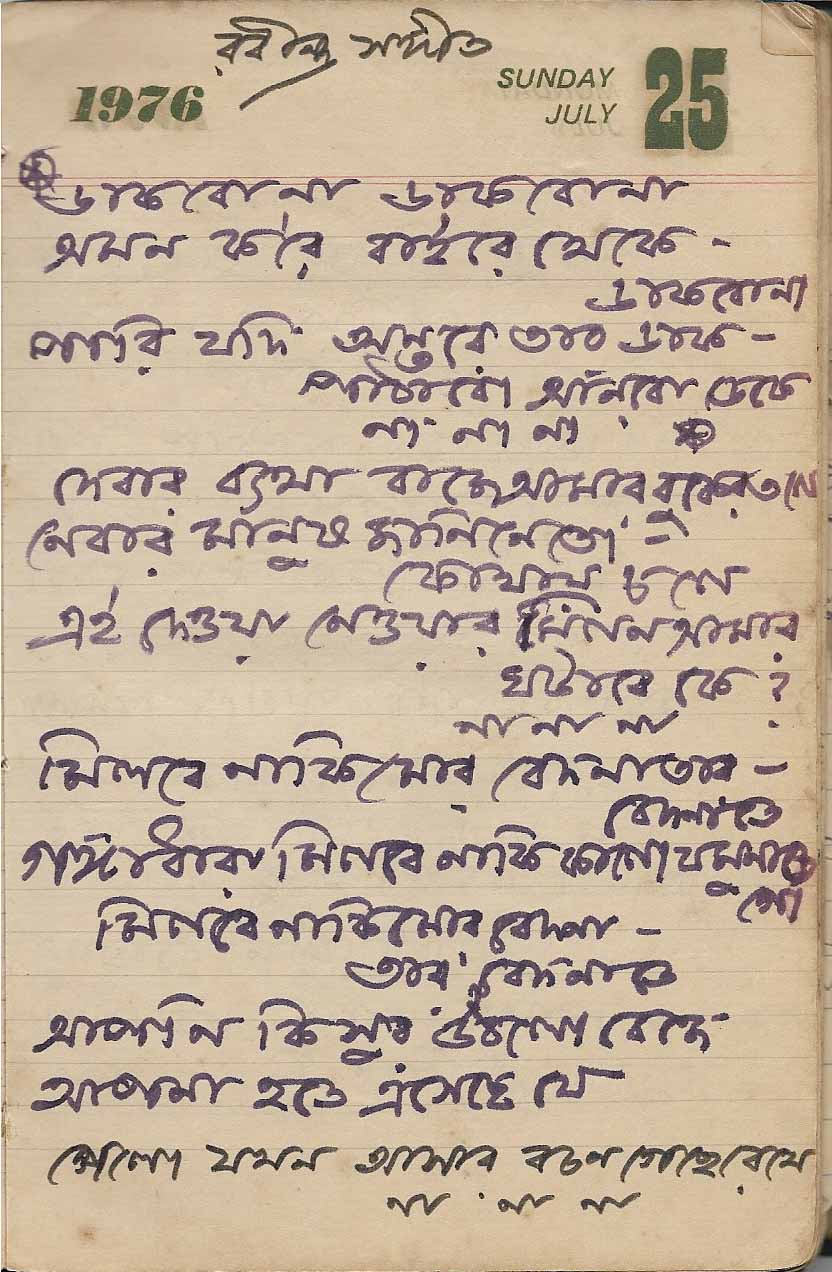 রবীন্দ্র সঙ্গীত
1976
SUNDAY
JULY
25
ডাকবো না ডাকবো না
অমন ক'রে বাইরে থেকে -
ডাকবো না
পারি যদি অন্তরে তার ডাক -
পাঠাবো আনবো ডেকে
না না না
দেবার ব্যথা বাজে আমার বুকের তলে
নেবার মানুষ জানিনে তো -
কোথায় চলে
এই দেওয়া নেওয়ার মিলন আমার
ঘটাবে কে ?
না না না
মিলবে নাকি মোর বেদনা তার -
বেদনাতে
গঙ্গাধারা মিলবে নাকি কালো যমুনাতে
গো
মিলবে নাকি মোর বেদনা -
তার বেদনাতে
আপনি কি সুর উঠলো বেজে
আপনা হতে এসেছে যে
গেলো যখন আশার বচন গেছে রেখে
না না না